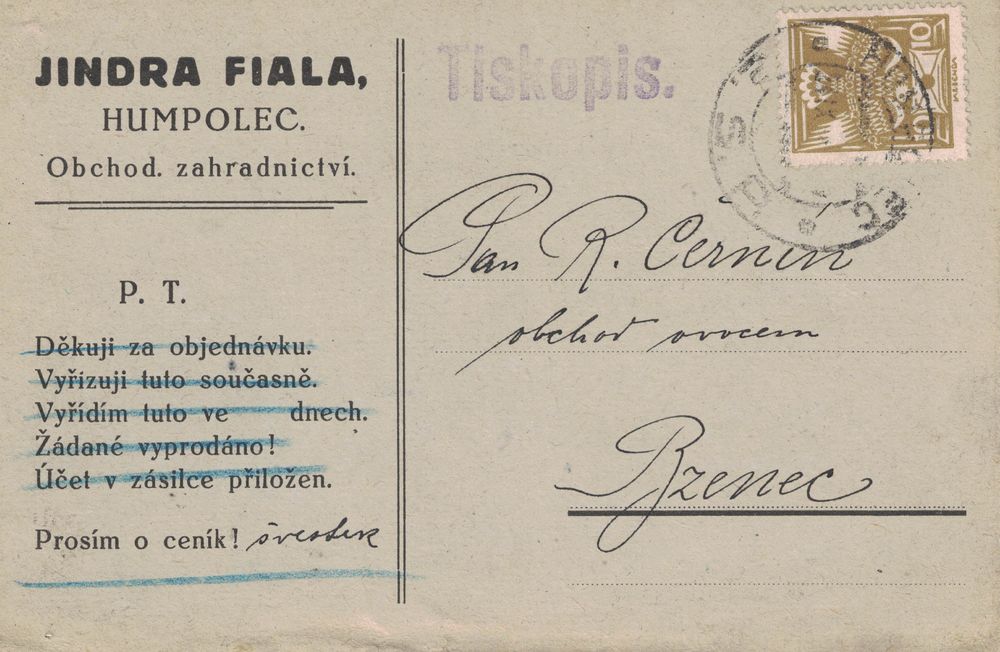 JINDRA FIALA,
HUMPOLEC.
Obchod. zahradnictví.
P. T.
Děkuji za objednávku.
Vyřizuji tuto současně.
Vyřídím tuto ve dnech.
Žádané vyprodáno!
Účet v zásilce přiložen.
Prosím o ceník! švestek
Tiskopis.
10
10
Pan R. Černín
obchod ovocem
Bzenec